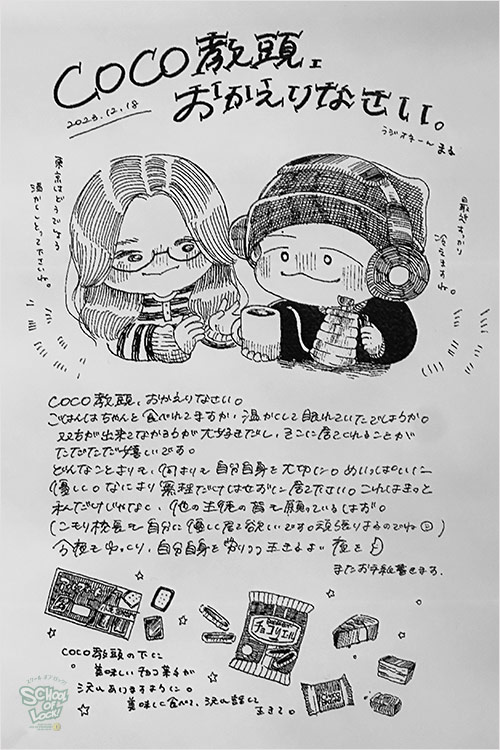 COCO教頭、
おかえりなさい。
2023.12.18
ラジオネーム まる
東京はどうでしょう
温かくしとって下さいね。
最近すっかり
冷えますね。
COCO教頭、おかえりなさい。
ごはんはちゃんと食べれてますか、温かくして眠れていたでしょうか。
双ちが出来てなかろうが大好きだし、そこに居てくれることが
ただただただ嬉しいです。
どんなことよりも、何よりも自分自身を大切に。めいっぱいに
優しく。なにより無理だけはせずに居て下さい。これはきっと
私だけじゃなく、他の生徒の皆も願っているはず。
(こもり校長も自分に優しく居て欲しいです。頑張りすぎるのでね)
今夜もゆっくり、自分自身を労りつつ 生きるよい夜を
またお手紙書きます。
チョコリエール
COCO教頭の下に
美味しいチョコ菓子が
沢山ありますように。
美味しく食べて、沢山話して
生きて。
SCHOOL
OF
LOCK!